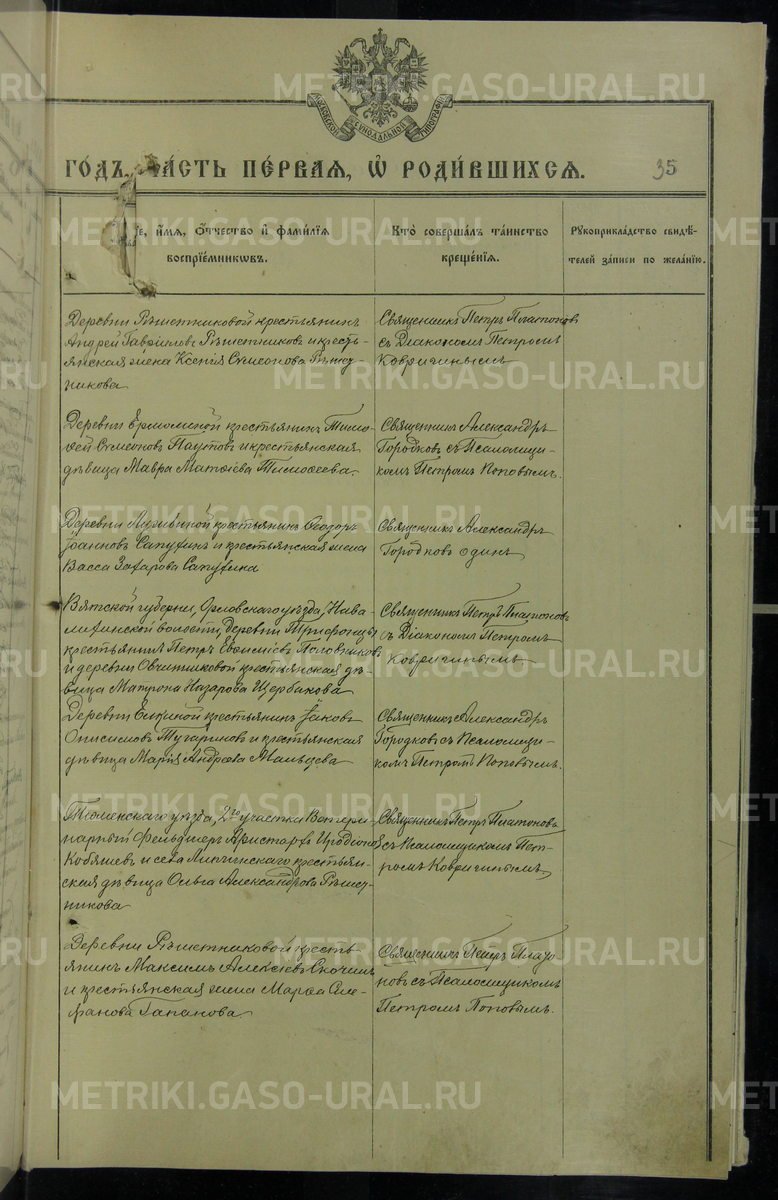 МОСКОВСКОЙ СѴНОДАЛЬНОЙ ТИПОГРАФІИ
ГО́ДЪ, ЧА́СТЬ ПЕ́РВАЯ, Ѡ҆ РОДИ́ВШИХСЯ.
35
И҆́МЯ, Ѻ҆́ТЧЕСТВО И҆ ФАМИ́ЛІЯ
ВОСПРІЕ́МНИКѠВЪ.
КТО̀ СОВЕРША́ЛЪ ТА́ИНСТВО
КРЕЩЕ́НІЯ.
РУКОПРИКЛА́ДСТВО СВИДѢ́-
ТЕЛЕЙ ЗА́ПИСИ ПО ЖЕЛА́НІЮ.
Деревни Рѣшетниковой крестьянинъ
Андрей Гавріиловъ Рѣшетниковъ и кресть-
янская жена Ксенія Симеонова Рѣшет-
никова
Священникъ Петръ Платоновъ
съ Діакономъ Петромъ
Ковригинымъ
Деревни Ермолиной крестьянинъ Тимо-
ѳей Симеоновъ Паутовъ и крестьянская
дѣвица Мавра Матѳіева Тимоѳеева.
Священникъ Александръ
Городковъ съ Псаломщи-
комъ Петромъ Поповымъ.
Деревни крестьянинъ Ѳеодоръ
Іоанновъ Сапугинъ и крестьянская жена
Васса Захарова Сапугина
Священникъ Александръ
Городковъ одинъ
Вятской губерніи, Орловскаго уѣзда,
волости, деревни
крестьянинъ Петръ Евѳиміевъ Половниковъ
и деревни Овчинниковой крестьянская дѣ-
вица Матрона Назарова Щербакова
Священникъ Петръ Платоновъ
съ Діакономъ Петромъ
Ковригинымъ
Деревни Елкиной крестьянинъ Іаковъ
Онисимовъ Тугариновъ и крестьянская
дѣвица Марія Андреева Мальцева
Священникъ Александръ
Городковъ съ Псаломщи-
комъ Петромъ Поповымъ.
Тюменскаго уѣзда, 2го участка Ветери-
нарный Фельдшеръ Аристархъ Иродіоновъ
Кобяшевъ и села Липчинскаго крестьян-
ская дѣвица Ольга Александрова Рѣшет-
никова
Священникъ Петръ Платоновъ
съ Псаломщикомъ Пет-
ромъ Ковригинымъ
Деревни Рѣшетниковой кресть-
янинъ Максимъ Алексіевъ Скочинъ
и крестьянская жена Марѳа Сте-
фанова Гапанова.
Священникъ Петръ Плато-
новъ съ Псаломщикомъ
Петромъ Поповымъ.
METRIKI.GASO-URAL.RU